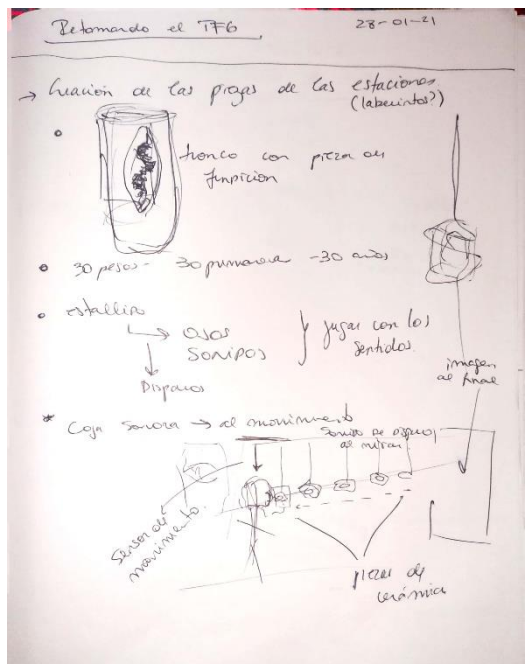 Retomando el TFG
28-01-21
→ Creación de las piezas de las estaciones
(laberintos?)
tronco con pieza de
fundición
30 pesos - 30 primavera - 30 años
estallido
Osos
Sonidos
Disparos
jugar con los
sentidos.
imagen
al final
* Caja sonora → al movimiento
Sonido de disparos
al mirar
Sensor de
movimiento.
piezas de
cerámica